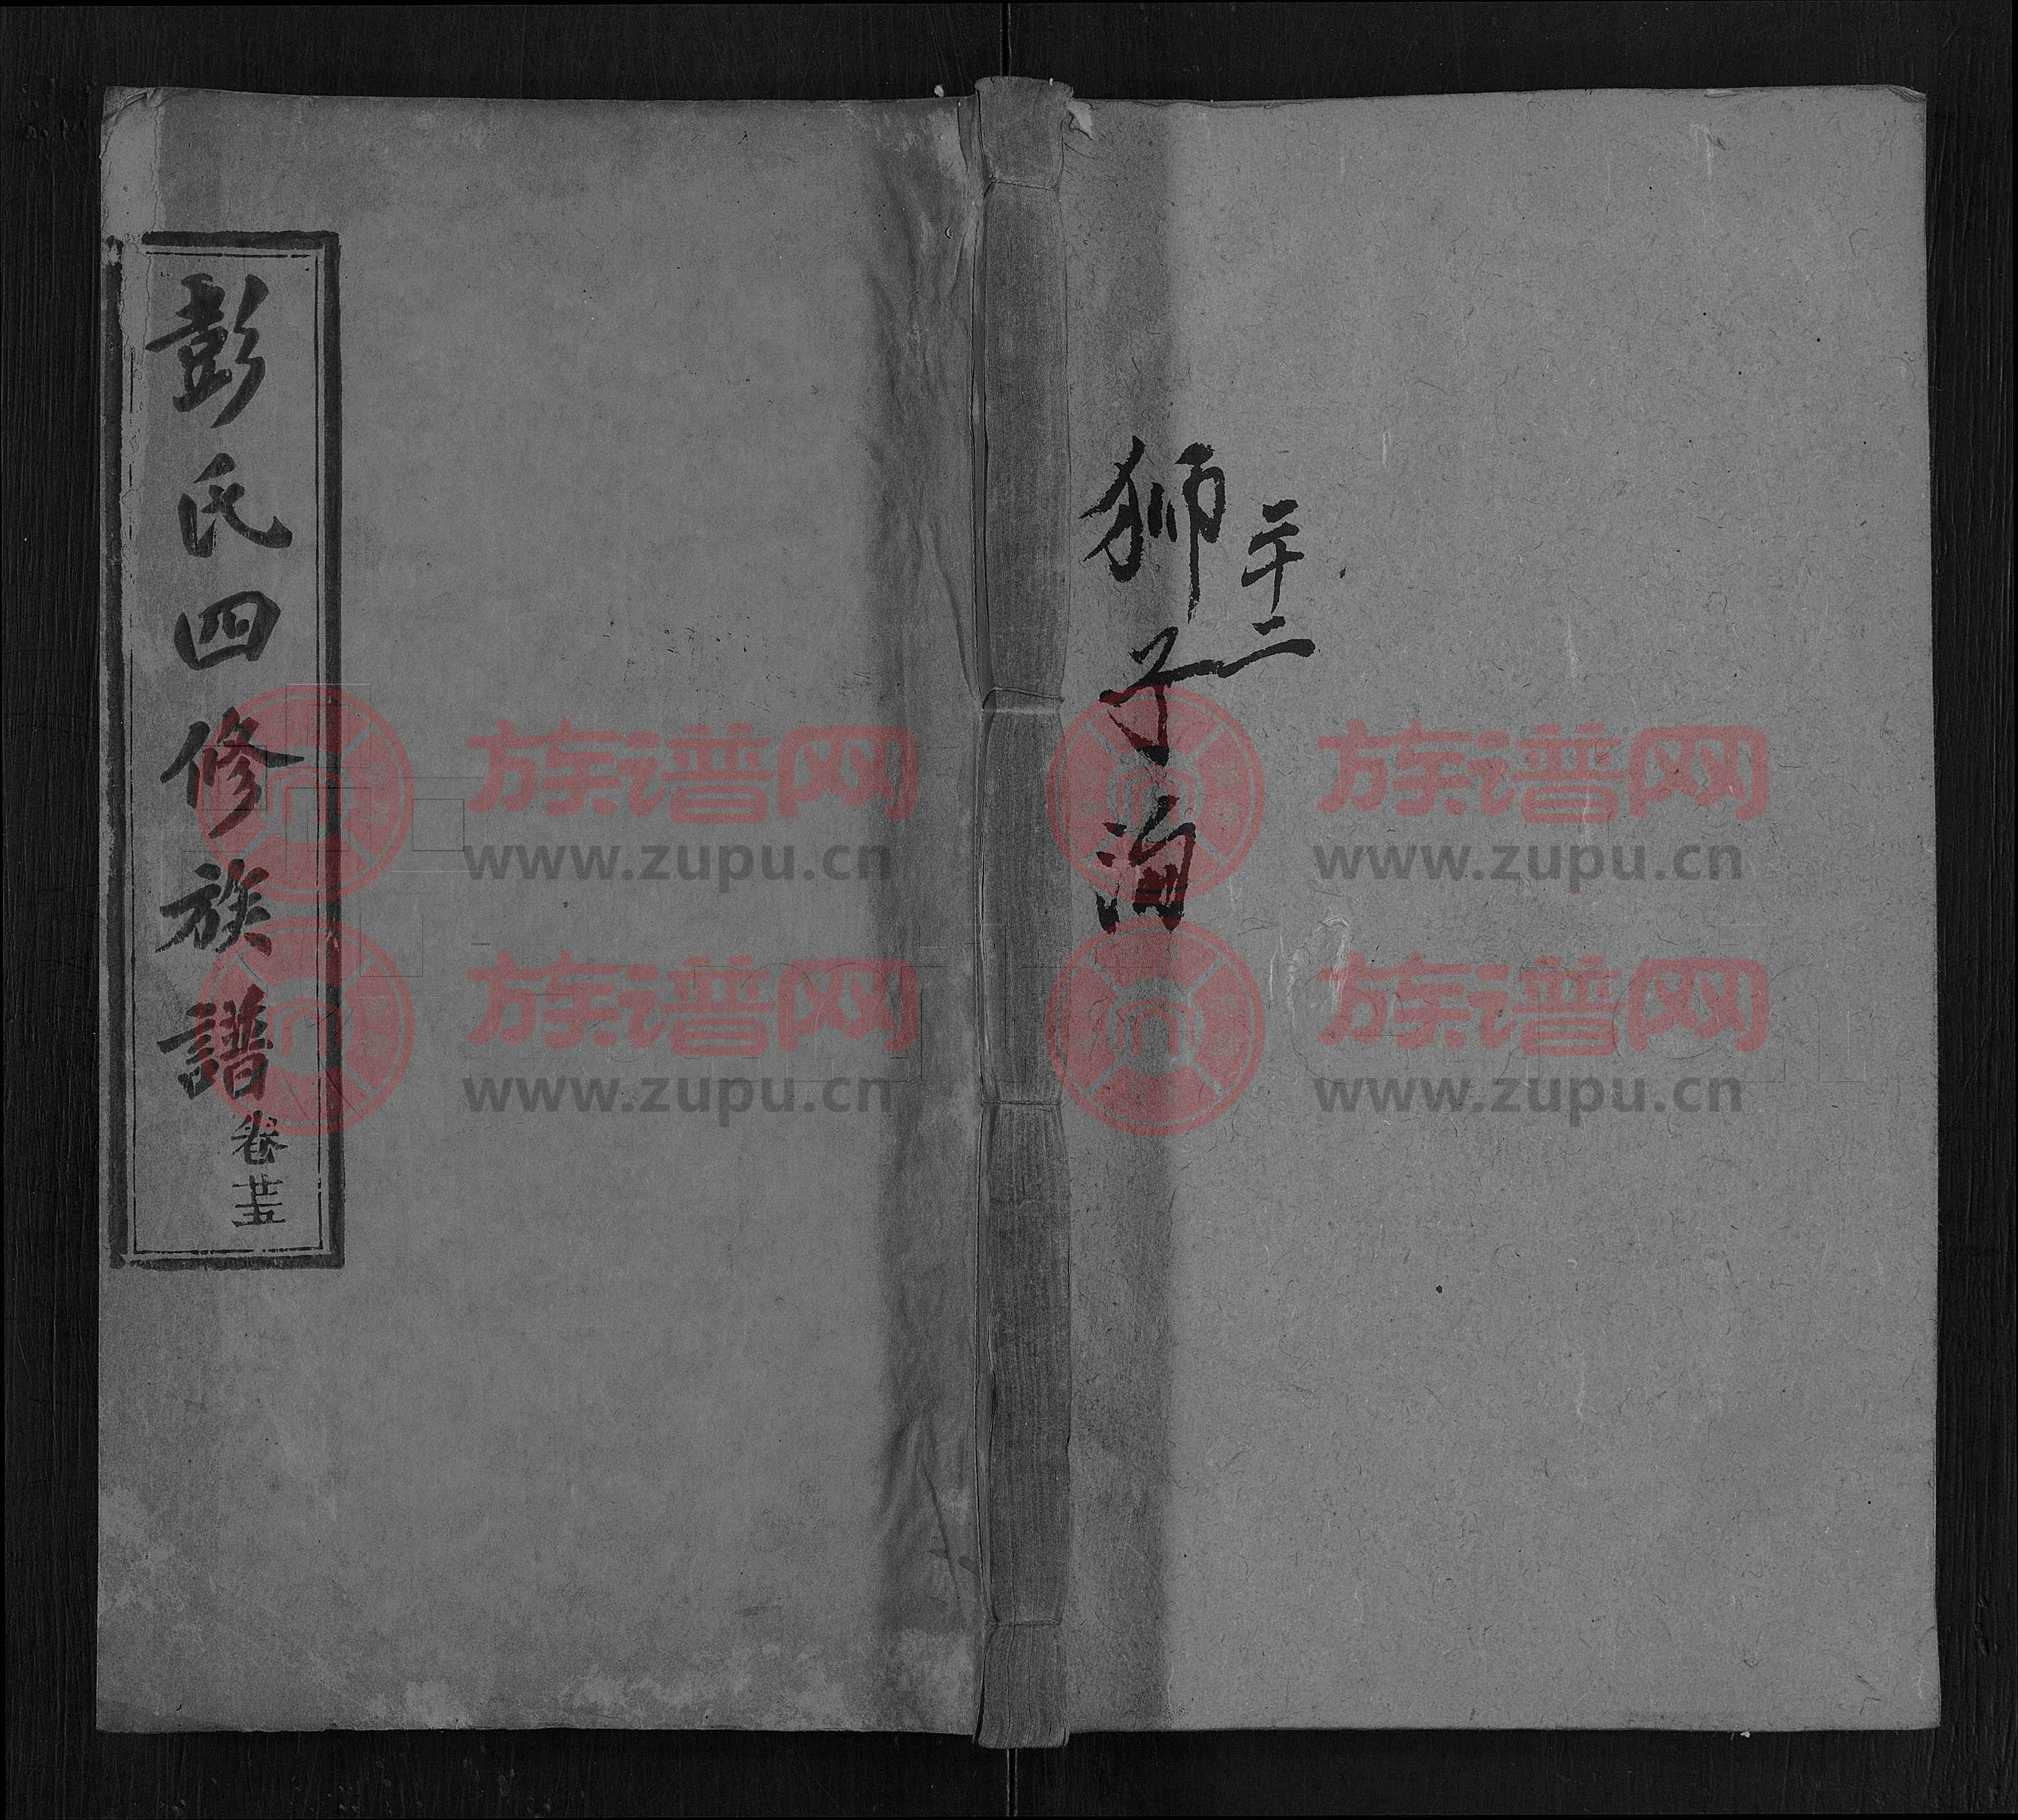 彭氏四修族譜
卷廿五
二十二
狮子
族谱网
www.zupu.cn
族谱网
www.zupu.cn
族谱网
www.zupu.cn
族谱网
www.zupu.cn